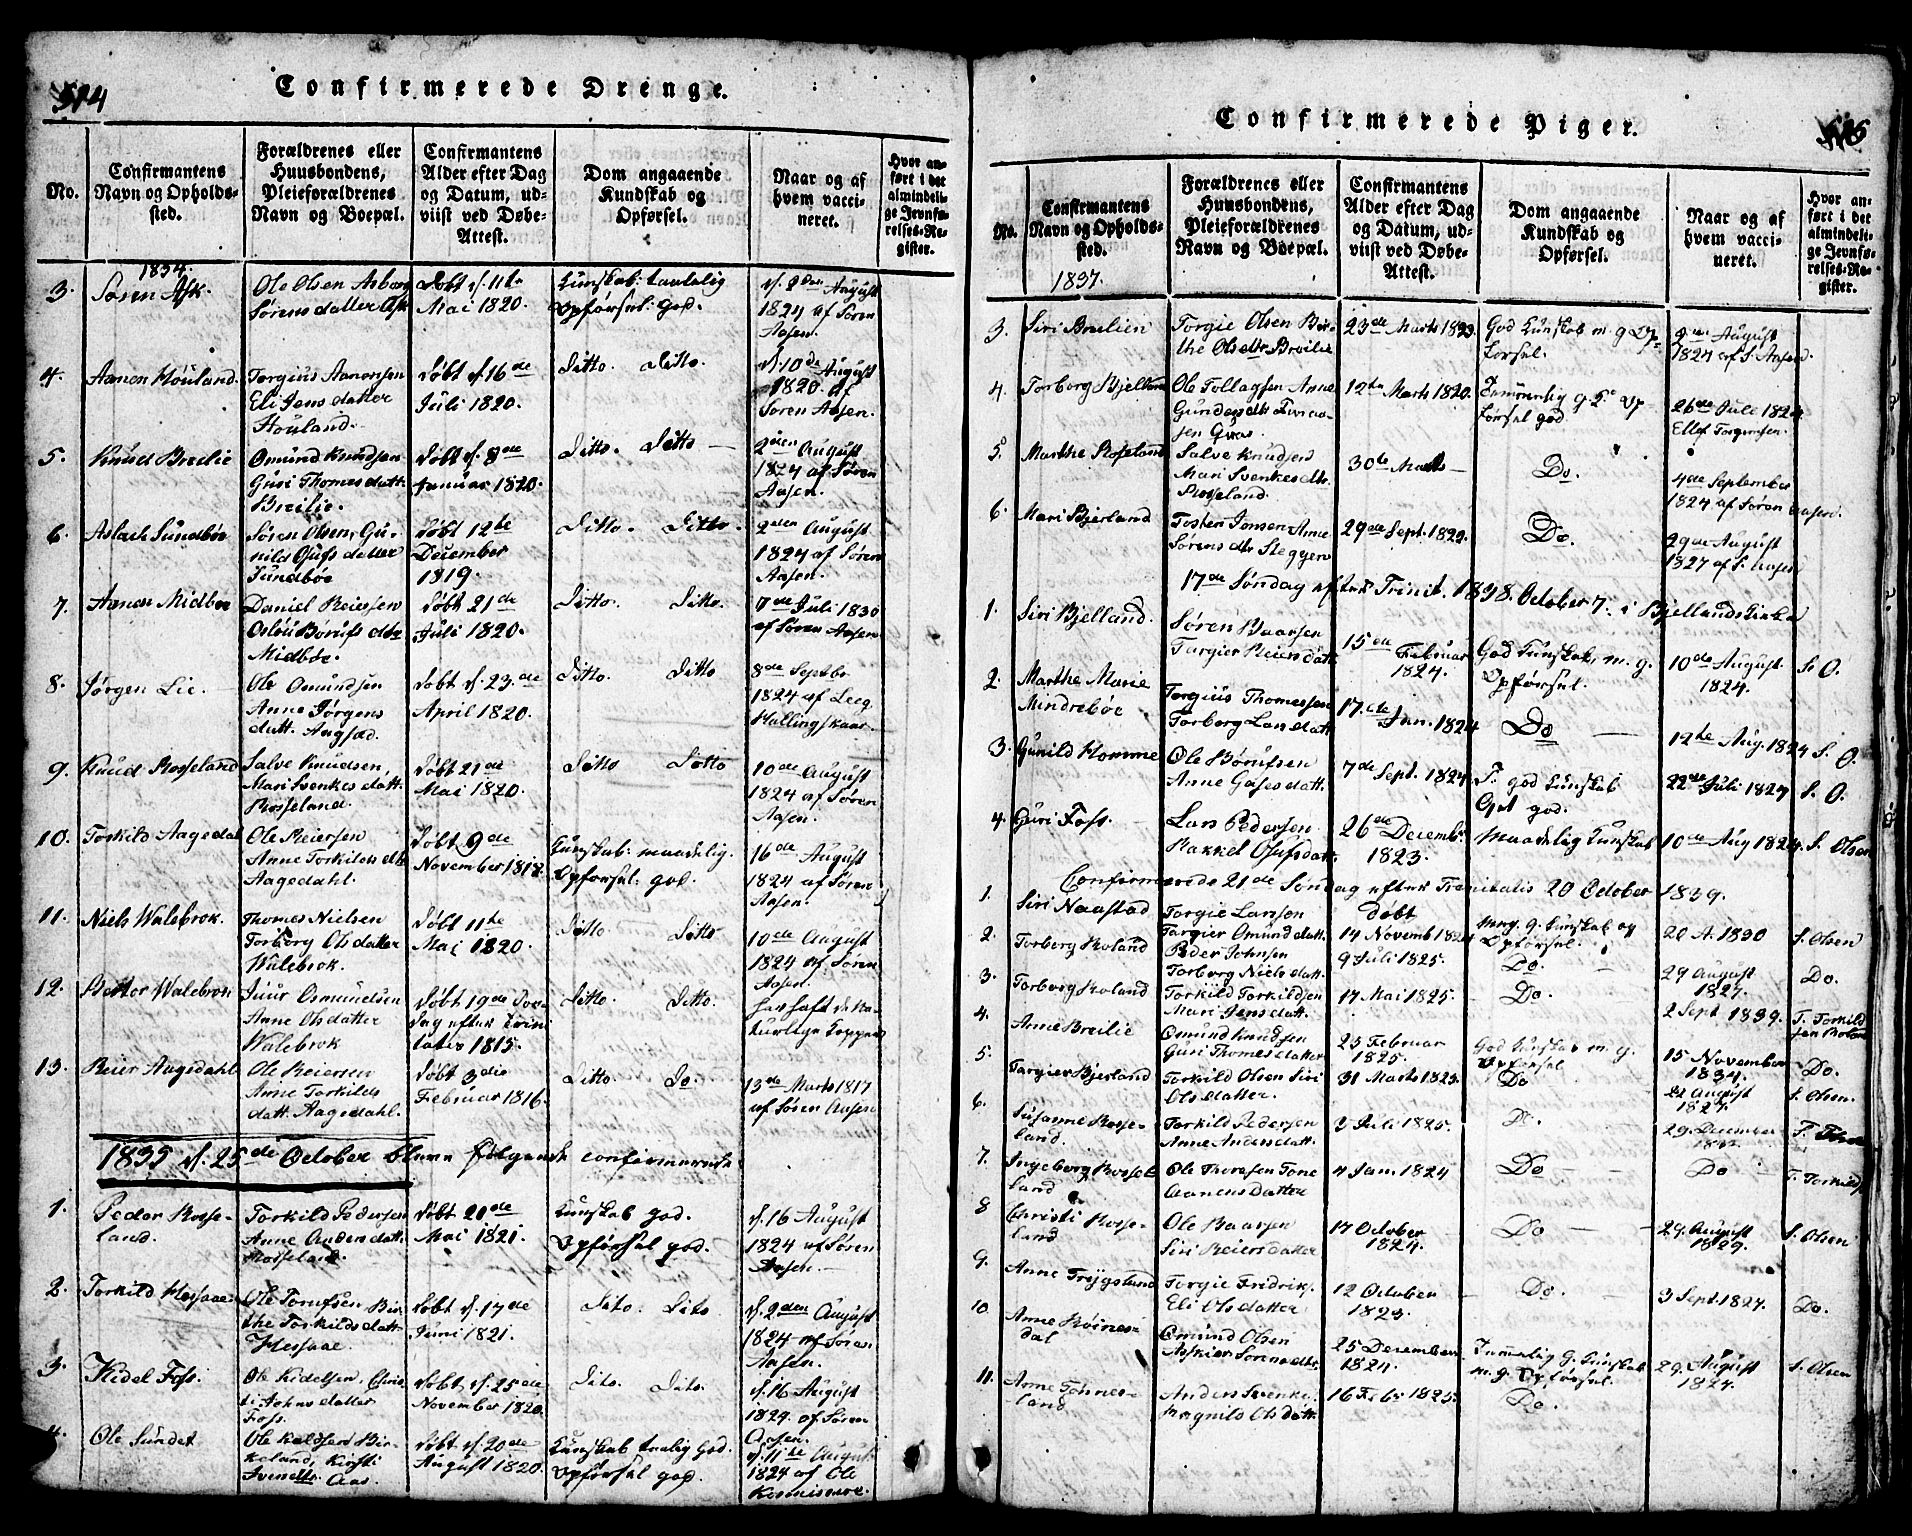 514
Confirmerede Drenge.
No.
Confirmantens
Navn og Opholds-
sted.
Forældrenes eller
Huusbondens,
Pleieforældrenes
Navn og Boepæl.
Confirmantens
Alder efter Dag
og Datum, ud-
viist ved Døbe-
Attest.
Dom angaaende
Kundskab og
Opførsel.
Naar og af
hvem vacci-
neret.
Hvor an-
ført i det
almindeli-
ge Jevnfø-
relses-Re-
gister.
1834.
3. Søren Ask.
Ole Olsen Asborg
Sørensdatter Ask
Døbt d. 11te
Mai 1820.
Kunskab: taalelig
Opførsel: god.
d. 2den August
1824 af Søren
Aasen.
4. Aanen Houland.
Torgius Aanensen
Eli Jensdatter
Houland.
Døbt d. 16de
Juli 1820.
Ditto. Ditto.
d. 10de August
1820. af
Søren Aasen.
5. Knud Breilie
Omund Knudsen
Guri Thomesdatt.
Breilie.
Døbt d. 8de
Januar 1820.
Ditto. Ditto
2den August
1824 af Søren
Aasen.
6. Aslach Sundbøe
Søren Olsen, Gu-
nild datter
Sundbøe
Døbt 12te
December
1819.
Ditto. Ditto.
2den August
1824 af Søren
Aasen.
7. Aanen Midbøe
Daniel Reiersen
Midbøe.
Døbt 21de
Juli 1820.
Ditto. Ditto.
7de Juli 1830
af Søren Aasen
8. Jørgen Lie.
Ole Omundsen
Anne Jørgens
datt.
Døbt d. 23de
April 1820.
Ditto Ditto
8de Septbr
1824 af
9. Knud Rosseland
Salve Knudsen,
Mari Svenkesdatt.
Rosseland.
Døbt 21de
Mai 1820.
Ditto Ditto
10de August
1824 af Søren
Aasen.
10. Torkild Aagedal
Ole Reiersen
Anne Torkilds dtr
Aagedahl.
Døbt 9de
November
Kunskab: maadelig.
Opførsel: god.
16de August
1824 af Søren
Aasen.
11. Niels Walebrok.
Thomes Nielsen
Torborg Olsdatter
Walebrok.
Døbt 11te
Mai 1820.
Ditto Ditto
10de August
1824 af Søren
Aasen.
12. Walebrok
Osmundsen
Anne Olsdatter
Walebrok
Døbt 19de
dag efter Trini
tatis 1815.
Ditto. Ditto.
har haft de na-
turlige Kopper
13. Reier Aagedahl
Ole Reiersen
Anne Torkilds
datt. Aagedahl.
Døbt 3die
Februar 1816.
Ditto Do.
13de Marts 1817
af Søren Aasen
1835 d. 25de October bleve følgende confirmerede
1. Peder Rosse-
land.
Torkild Pedersen
Anne Andersdatt.
Rosseland.
Døbt 20de
Mai 1821.
Kunskab god.
Opførsel god.
d. 16 August
1824 af Søren
Aasen.
2. Torkild Hessaae
Ole Bir-
the Torkildsdatt.
Hessaae.
Døbt d. 17de
Juni 1821.
Dito. Dito
d. 2den August
1824 af Søren
Aasen.
3. Kidel Foss.
Ole Kidelsen, Chris-
ti Johnsdatter
Foss.
Døbt d. 25de
November 1820.
Dito. Dito.
d. 16 August
1824. af Søren
Aasen.
4. Ole Sundet
Ole Bir-
keland, Kirsti
Svensdtr Aas.
Døbt d. 20de
August 1820.
Kunskab god.
Opførsel god.
d. 11te August
1824 af Ole
Confirmerede Piger.
No.
Confirmantens
Navn og Opholds-
sted.
Forældrenes eller
Huusbondens,
Pleieforældrenes
Navn og Boepæl.
Confirmantens
Alder efter Dag
og Datum, ud-
viist ved Døbe-
Attest.
Dom angaaende
Kundskab og
Opførsel.
Naar og af
hvem vacci-
neret.
Hvor an-
ført i det
almindeli-
ge Jevnfø-
relses-Re-
gister.
1837.
3. Siri Breilien
Torgie Olsen Bir-
the Olsdtr Breilie
23de Marts
God Kunskab m. g. Op-
førsel.
2den August
1824 af S. Aasen.
4. Torborg Bjelland
Ole Tollagsen Anne
12te Marts 1820.
førsel god.
26de Juli
5. Marthe Roseland
Salve Knudsen
Mari Svenkesdtr.
Rosseland.
30te Marts
Do.
4de September
1824 af Søren Aasen.
6. Mari Bjerland
Tosten Jonsen Anne
Sørensdtr
29de Sept.
Do.
29de August
1827 af S. Aasen
17de Søndag efter Trinit. 1838. October 7. i Bjellands Kirke
1. Siri Bjelland.
Søren Baarsen
Torgier Reiersdatt.
15de Februar
1824.
God Kunskab, m. g.
Opførsel.
10de August
1824.
S. O.
2. Marthe Marie
Mindrebøe
Torgius Thomessen
Torborg Larsdatt.
17de Jan. 1824
Do
12te Aug. 1824
S. O.
3. Gunild Homme
Ole
Anne
7de Sept. 1824
T. god Kunskab
Opf. god.
22de Juli 1824
S. O.
4. Guri Foss.
Lars Pedersen
Rakkel
26de Decemb.
1823.
Maadelig Kunskab
10de Aug 1824.
S. Olsen
Confirmerede 21de Søndag efter Trinitatis 20 October 1839.
1. Siri Naastad
Torgie Larsen
Torgier Omundsdatt.
døbt
14 Novemb
Meg. g. Kunskab og
Opførsel.
20 A. 1830
S. Olsen
2. Torborg Roland
Peder Johnsen
Torborg Nielsdatt.
9 Juli 1825.
Do.
29 August
1827.
Do.
3. Torborg Roland
Torkild Torkildsen
Mari Jensdatt.
17 Mai 1825.
Do.
2 Sept 1839.
T. Torkild
sen Roland
4. Anne Breilie
Omund Knudsen
Guri Thomesdatter
25 Februar
1825.
God Kunskab m. g.
Opførsel
15 November
1834.
Do.
5. Torgier Bjerland
Torkild Olsen Siri
Olsdatter.
31 Marts
Do
21 August
1827.
S. Olsen.
6. Susanne Rosse-
land.
Torkild Pedersen
Anne Andersdatt.
3 Juli 1825.
D.
29. December
7. Ingeborg Rossel
land
Ole Thoresen Tone
Aanensdatter
4 Jan. 1824
Do
Do
T. Torkilds
8 Christi Rosse-
land
Ole Baarsen
Siri Reiersdatter
17 October
1824.
Do
29. August
1829.
S. Olsen
9. Anne Trygsland
Torgie Fredrik.
Eli Olsdatter
12 October
1823.
Do.
3 Sept. 1827.
Do.
10. Anne
dal
Omund Olsen
25 December
1824.
Temmelig g. Kunskab
m. g. Opførsel.
29. August
1824.
S. Olsen
11. Anne Tønnes-
land
Anders Svenke
Magnild Olsdatt.
16 Feb. 1825.
Do.